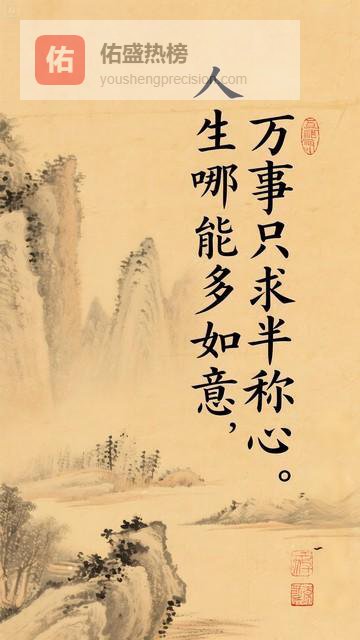 佑
佑盛热榜
youshengprecision.com
人生哪能多如意，
万事只求半称心。